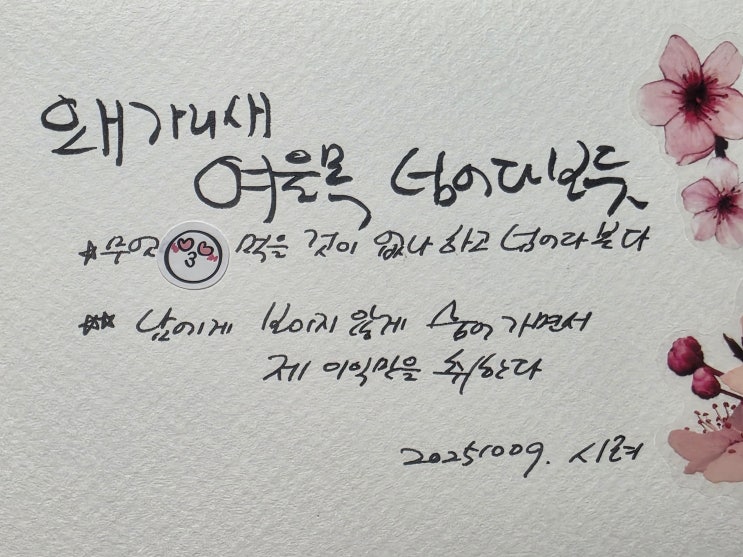 왜가리새
여울목 넘어다보듯
*무엇 먹을 것이 없나 하고 넘어다 본다
** 남에게 보이지 않게 숨어 가면서
제 이익만을 취한다
20251009. 시려